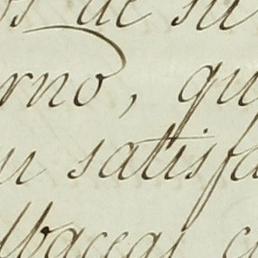 de su
rno, qu
satisfa
lbaceas